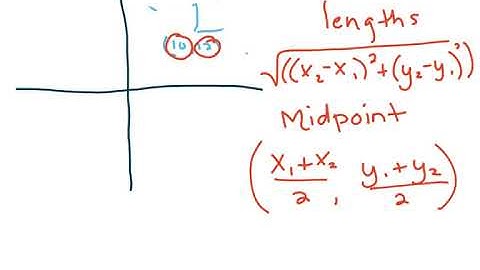 lengths
√((x₂-x₁)²+(y₂-y₁)²)
Midpoint
(x₁+x₂/2, y₁+y₂/2)
10